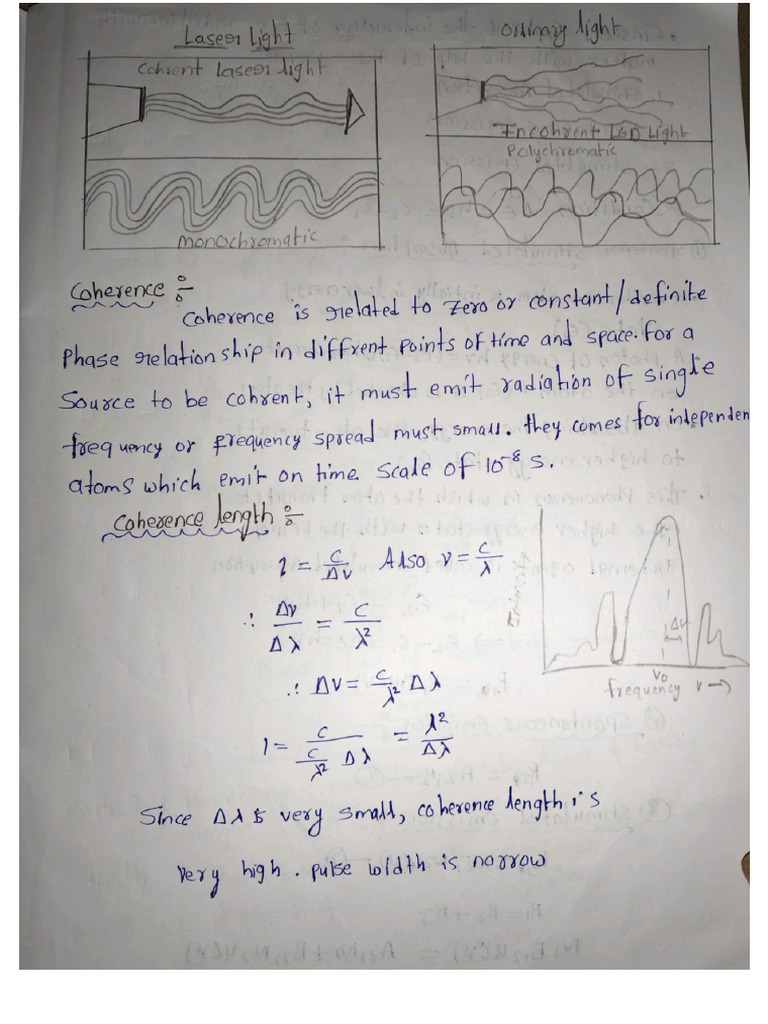 Laser Light
Cohrent Laser light
monochromatic
Ordinary light
Incohrent LED Light
Polychrematic
Coherence :-
Coherence is related to zero or constant/definite
Phase relationship in diffrent points of time and space. for a
Source to be cohrent, it must emit radiation of single
frequency or frequency spread must small. they comes for independen
atoms which emit on time scale of 10⁻⁸ s.
Coherence length :-
l = c/Δν Also ν = c/λ
∴ Δν/Δλ = c/λ²
∴ Δν = c/λ² Δλ
l = c/(c/λ² Δλ) = λ²/Δλ
Intensity
Δν
ν₀
frequency ν →
Since Δλ is very small, coherence length is
Very high. pulse width is narrow